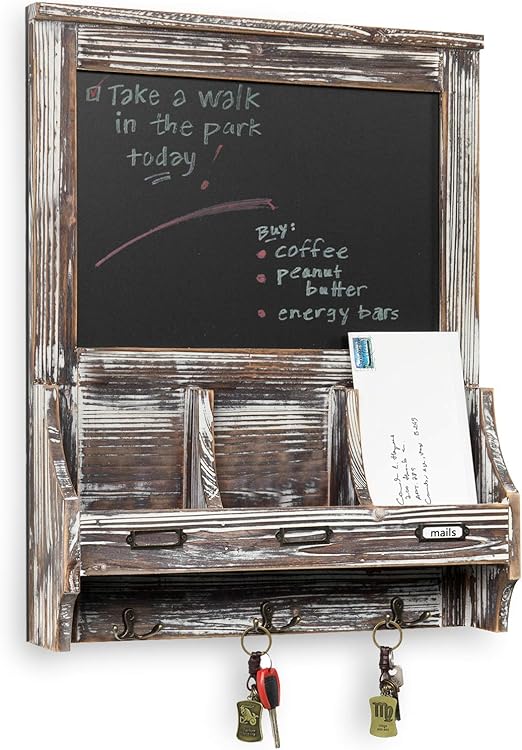 Take a walk
in the park
today!
Buy:
coffee
peanut
butter
energy bars
mails